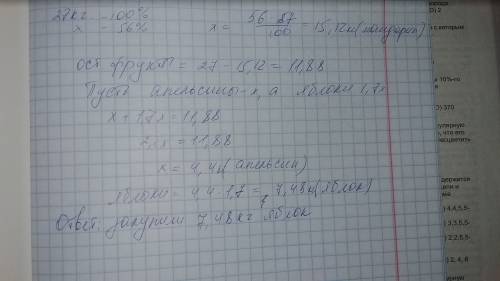 27кг - 100%
x - 56%
x = 56 · 27 / 100 = 15,12кг(мандарин)
ост фрукт = 27 - 15,12 = 11,88
Пусть апельсины - x, а яблоки 1,7x
x + 1,7x = 11,88
2,7x = 11,88
x = 4,4кг (апельсин)
яблоки = 4,4 · 1,7 = 7,48кг(яблок)
Ответ: закупили 7,48кг яблок
с которым
а 10%-го
О) 370
что его
держится
) 4,4,5,5-
) 3,3,5,5-
) 2,2,5,5-
) 2, 4, 6